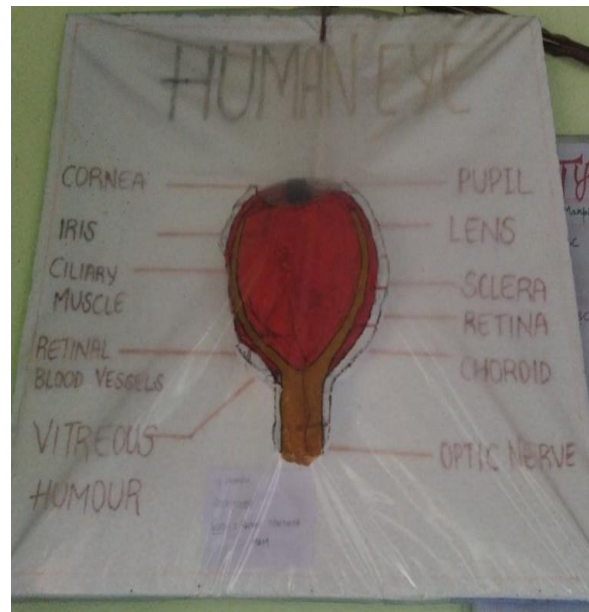 HUMAN EYE
CORNEA
IRIS
CILIARY
MUSCLE
RETINAL
BLOOD VESSELS
VITREOUS
HUMOUR
PUPIL
LENS
SCLERA
RETINA
CHOROID
OPTIC NERVE
TY